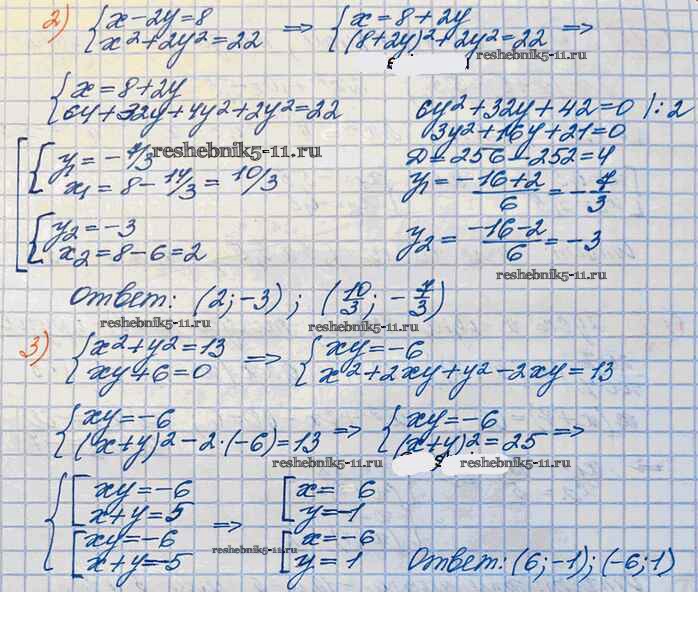 2) { x - 2y = 8 => { x = 8 + 2y =>
{ x² + 2y² = 22 { (8 + 2y)² + 2y² = 22
reshebnik5-11.ru
{ x = 8 + 2y
{ 64 + 32y + 4y² + 2y² = 22
6y² + 32y + 42 = 0 |: 2
3y² + 16y + 21 = 0
D = 256 - 252 = 4
y₁ = (-16 + 2)/6 = -7/3
y₂ = (-16 - 2)/6 = -3
reshebnik5-11.ru
[ { y₁ = -7/3
reshebnik5-11.ru
{ x₁ = 8 - 14/3 = 10/3
{ y₂ = -3
{ x₂ = 8 - 6 = 2
Ответ: (2; -3); (10/3; -7/3)
reshebnik5-11.ru reshebnik5-11.ru
3) { x² + y² = 13 => { xy = -6
{ xy + 6 = 0 { x² + 2xy + y² - 2xy = 13
{ xy = -6 => { xy = -6 =>
{ (x + y)² - 2·(-6) = 13 { (x + y)² = 25
reshebnik5-11.ru reshebnik5-11.ru
{ [ xy = -6 => [ x = 6
[ x + y = 5 [ y = -1
[ xy = -6 [ x = -6
[ x + y = -5 [ y = 1
reshebnik5-11.ru
Ответ: (6; -1); (-6; 1)